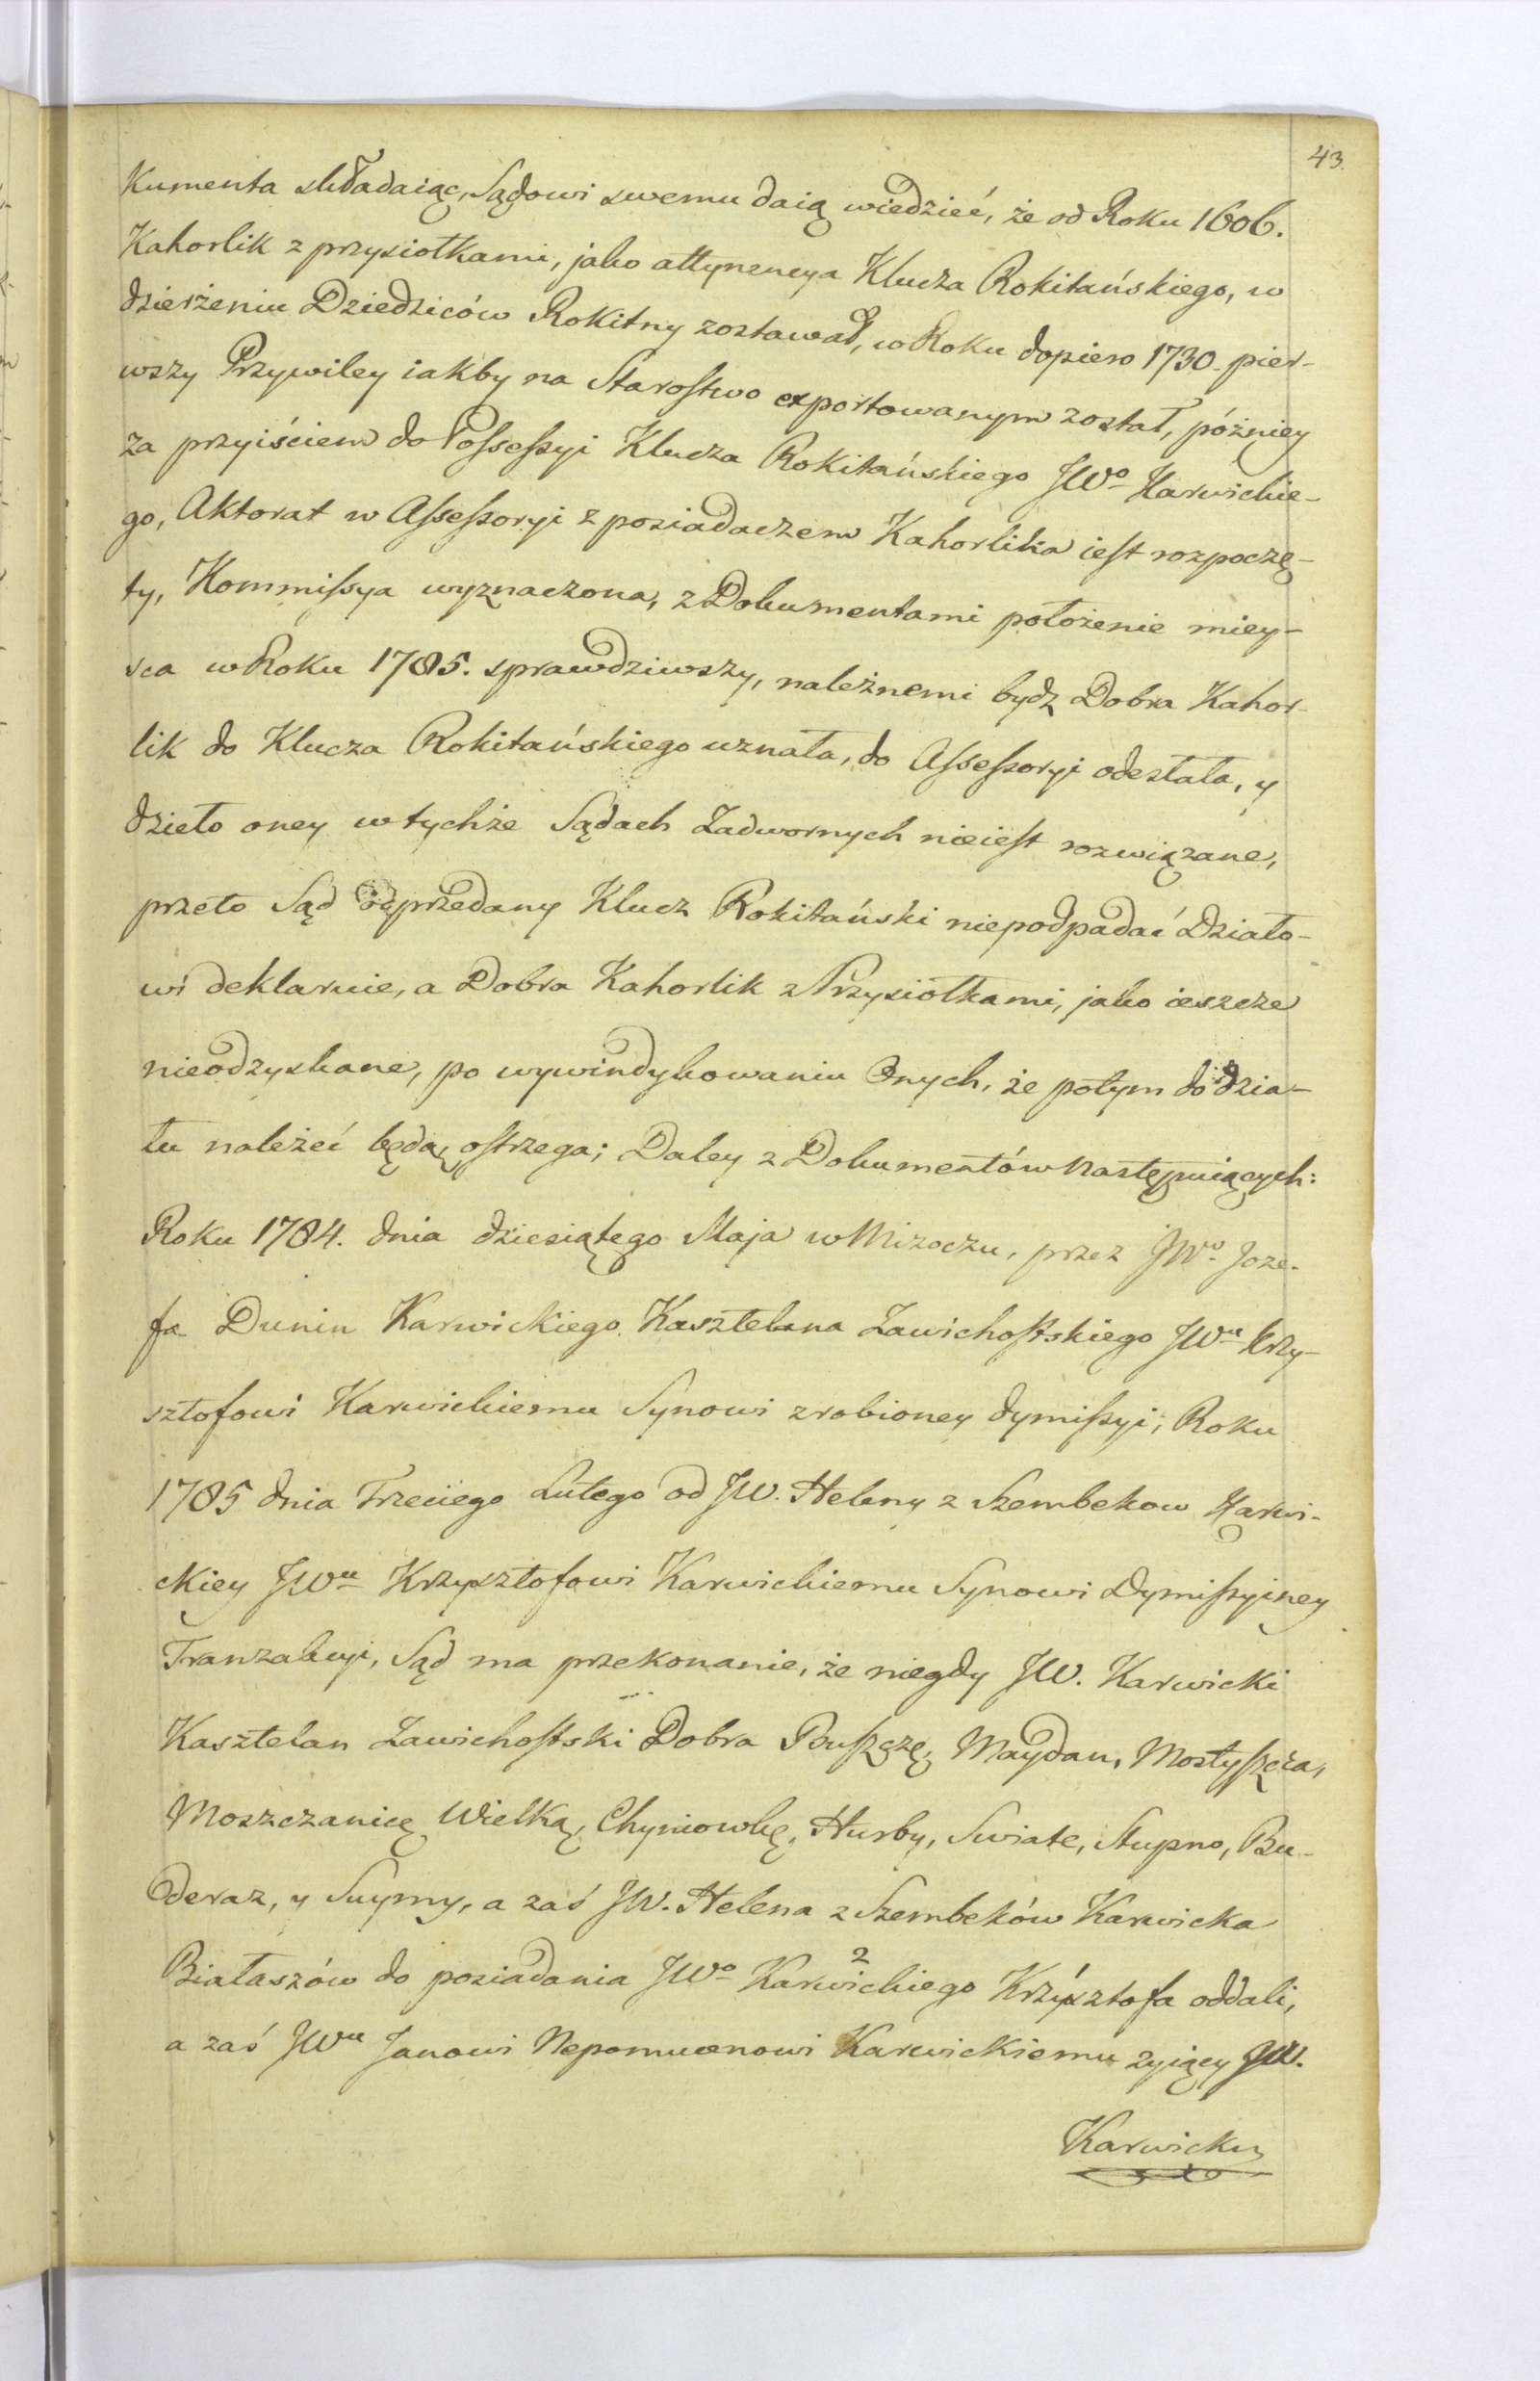 43.
kumenta składaiąc, Sądowi swemu daią wiedzieć, że od Roku 1606.
Kahorlik z przysiołkami, jako attynencya Klucza Rokitańskiego, w
dzierżeniu Dziedziców Rokitny zostawał, w Roku dopiero 1730. pier-
wszy Przywiley iakby na Starostwo exportowanym został, późniey
za przyiściem do Possessyi Klucza Rokitańskiego JWo Karwickie-
go, Aktorat w Assessoryi z posiadaczem Kahorlika iest rozpoczę-
ty, Kommissya wyznaczona, z Dokumentami położenie miey-
sca w Roku 1785. sprawdziwszy, należnemi bydz Dobra Kahor-
lik do Klucza Rokitańskiego uznała, do Assessoryi odesłała, y
dzieło oney w tychże Sądach Zadwornych nieiest rozwiązane,
przeto Sąd odprzedany Klucz Rokitański niepodpadać Działo-
wi deklaruie, a Dobra Kahorlik z Przysiołkami, jako ieszcze
nieodzyskane, po wywindykowaniu Onych, że potym do dzia-
łu należeć będą, ostrzega; Daley z Dokumentów następuiących:
Roku 1784. dnia dziesiątego Maja w Mizoczu, przez JWo Joze-
fa Dunin Karwickiego Kasztelana Zawichostskiego JWu Krzy-
sztofowi Karwickiemu Synowi zrobioney dymissyi; Roku
1785 dnia Trzeciego Lutego od JW. Heleny z Szembekow Karwi-
ckiey JWu Krzysztofowi Karwickiemu Synowi Dymissyiney
Tranzakcyi, Sąd ma przekonanie, że niegdy JW. Karwicki
Kasztelan Zawichostski Dobra Buszczę, Maydan, Mostyszcza,
Moszczanicę Wielką, Chyniowkę, Hurby, Swiate, Stupno, Bu-
deraz, y Suymy, a zaś JW. Helena z Szembeków Karwicka
Białaszów do posiadania JWo Karwickiego 2 Krzysztofa oddali,
a zaś JWu Janowi Nepomucenowi Karwickiemu żyiący JW.
Karwicki